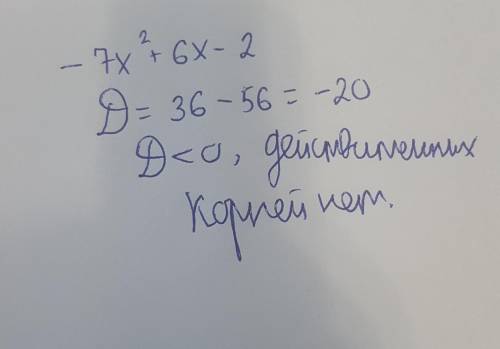 - 7x² + 6x - 2
D = 36 - 56 = -20
D < 0, действительных
корней нет.